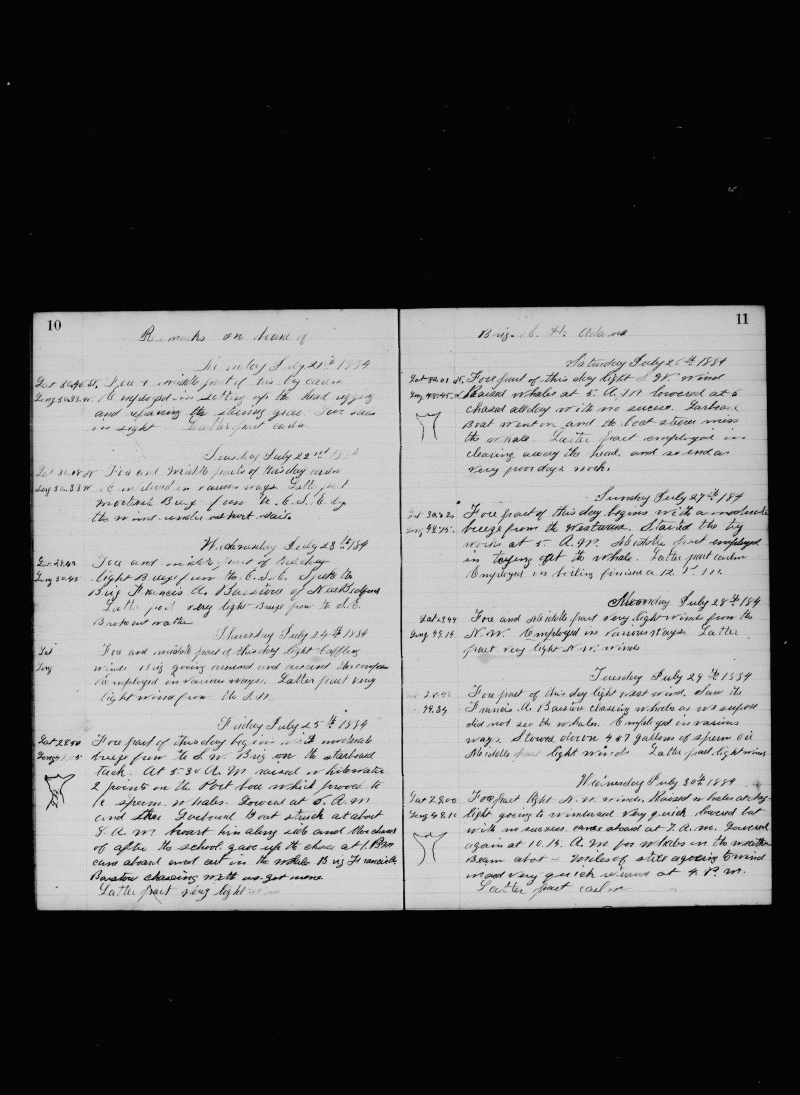 10
Remarks on board of
Monday July 21st 1884
Lat 30.40 N. Fore & middle part of this day calm
Long 50.33 W. Employed in setting up the head rigging
and repairing the steering gear.
in sight Latter part calm
Tuesday July 22nd 1884
Lat N Fore and Middle parts of this day calm
Long 50.33 W Employed in various ways. Latter part
moderate Breeze from the E.S.E. by
the wind under short sail.
Wednesday July 23th 1884
Lat 29.40 Fore and middle part of this day
Long 50.45 light Breeze from the E.S.E. Spoke the
Brig Francis A. Barstow of New Bedford
Latter part very light Breeze from the S.E.
Broke out water
Thursday July 24th 1884
Lat Fore and middle part of this day light baffling
Long winds Brig going around and around the compass
Employed in various ways. Latter part very
light wind from the S.W.
Friday July 25th 1884
Lat 28.50 Fore part of this day begins with moderate
Long breeze from the S.W. Brig on the starboard
tack. At 5.30 A.M. raised white water
2 points on the Port bow which proved to
be sperm whales. Lowered at 6. A.M
and the Larboard Boat struck at about
8. A.M. brought him along side and then chased
of after the school. gave up the chase at 1. P.M
came aboard and cut in the whale Brig Francis A.
Barstow chasing with us got none
Latter part very light
11
Brig. H. Adams
Saturday July 26th 1884
Lat 30.01 N. Fore part of this day light S.W. wind
Long 48.45. W. Raised whales at 5. A.M lowered at 6
chased all day with no success. Larboard
Boat went on and the boat steerer miss
the whale. Latter part employed in
clearing away the head. and so ends
very poor days work.
Sunday July 27th 184
Lat 30.20 Fore part of this day begins with a moderate
Long 48.15. breeze from the westward. Started the try
works at 5. A.M. Middle part employed
in trying out the whale. Latter part calm
Employed in boiling finished a 12 P.M.
Moonday July 28th 184
Lat 29.44 Fore and Middle part very light winds from the
Long. 49.14 N.W. Employed in various ways. Latter
part very light N.W. winds
Tuesday July 29th 1884
Fore part of this day light west wind. Saw the
49.34 Francis. A. Barstow chasing whales as we supose
did not see the whales. Employed in various
ways. Stowed down 407 gallons of sperm Oil
Middle part light winds Latter part light winds
Wednesday July 30th 1884
Lat 28.00 Fore part light N.W. winds. Raised whales at day-
Long 48.10 light going to windward very quick lowered but
with no success. came aboard at 7. A.M. Lowered
again at 10.15. A.M for whales on the weather
Beam about Miles of still agoing to wind
ward very quick returned at 4. P.M.
Latter part calm